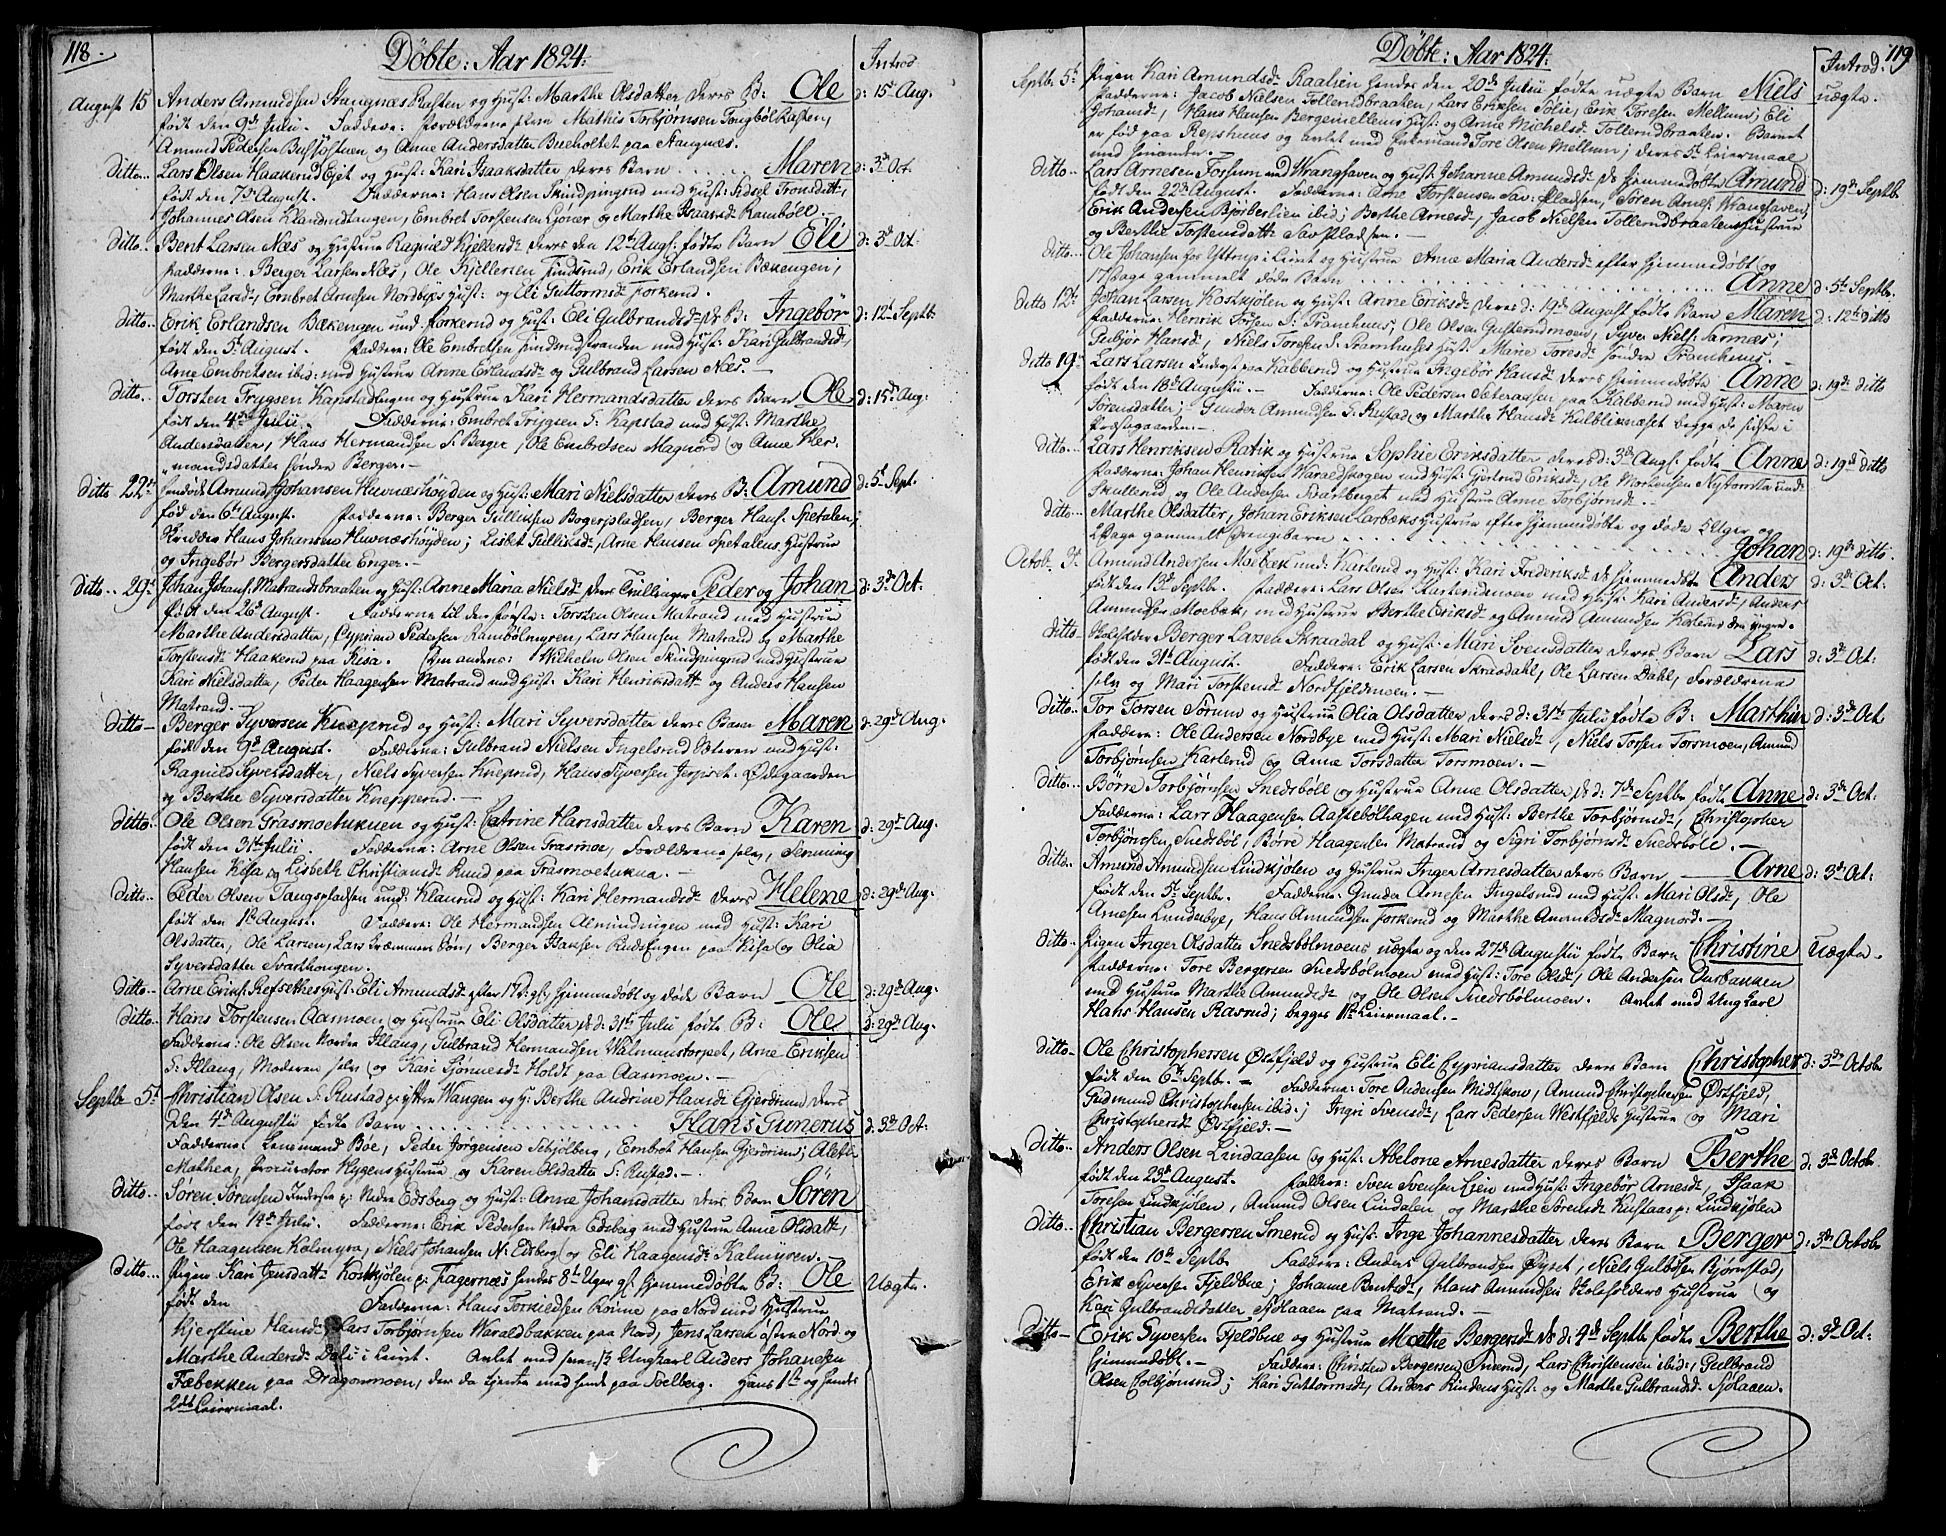 118.
Döbte: Aar 1824:
Introd
August 15 Anders Amundsen Stangnæs Rasten og Hust: Marthe Olsdatter deres B: Ole d: 15de Aug:
født den 9de Julii. Faddere: Forældrene selv Mathis Torbjørnsen Tongbölkasten,
Amund Pedersen og Anne Andersdatter paa Stangnæs.
Ditto... Lars Olsen Haakerud Ejet og Hust: Kari Isaaksdatter deres Barn ..... Maren d: 3de Oct.
født den 7de August. Fadderne: Hans Olsen Skindpingrud med Hust: Sidsel Tronsdatt:,
Johannes Olsen Klanderudtangen, Embret Torstensen og Marthe Ramböll.
Ditto... Bent Larsen Næs og Hustrue Ragnild Kjellersd: deres den 12te Aug: fødte Barn Eli d: 3de Oct:
Fadderne: Berger Larsen Næs, Ole Kjellersen Findsrud, Erik Erlandsen Bækengen;
Marthe Larsd:, Embret Arnesen Nordbyes Hust: og Eli Guttormsd: Forkerud.
Ditto... Erik Erlandsen Bækengen und: Forkerud og Hust: Eli Gulbrandsd: B: Ingebör d: 12te Septb:
født den 5te August. Faddere: Ole Embretsen Findsrudstranden med Hust: Kari Gulbrandsd:,
Arne Embretsen ibid: med Hustrue Anne Erlandsd: og Gulbrand Larsen Næs. —
Ditto... Torsten Trygsen Kapstadhagen og Hustrue Kari Hermandsdatter deres Barn Ole d: 15de Aug:
født den 4de Julii. Fadderne: Embret Trygsen S: Kapstad med Hust: Marthe
Andersdatter, Hans Hermandsen S: Berger, Ole Embretsen Magnord og Anne Her-
mandsdatter søndre Berger. —
Ditto 22de Amund Johansen Huvnæshöyden og Hust: Mari Nielsdatter deres B: Amund d: 5te Sept:
fød den 6te August. Fadderne: Berger Gulliksen Bogerpladsen, Berger Hans: Spetalen;
Hans Johansen Huvnæshöyden; Lisbet Gulliksd:, Arne Hansen Spetalens Hustrue
og Ingebör Bergersdatter Enger. —
Ditto.. 29de Johan Johans: Matrandsbraaten og Hust: Anne Maria Nielsd: deres Tvillinger Peder og Johan d: 3de Oct:
født den 26de August. Fadderne til den første: Torsten Olsen Matrand med Hustrue
Marthe Andersdatter, Cyprian Pedersen Rambölmyren, Lars Hansen Matrand og Marthe
Torstensd: Haakerud paa Kisa. Den andens: Wilhelm Olsen Skindpingrud med Hustrue
Kari Nielsdatter, Peder Haagensen Matrand med Hust: Kari Henriksdatt: og Anders Hansen
Matrand. —
Ditto — Berger Syversen Kneprud og Hust: Mari Syversdatter deres Barn Maren d: 29de Aug:
født den 9de August. Faddere: Gulbrand Nielsen Ingelsrud med Hust:
Ragnild Syversdatter, Niels Syversen Kneprud, Hans Syversen Jerpset Ødegaarden
og Berthe Syversdatter Knepperud. —
Ditto.. Ole Olsen Grasmoetukuen og Hust: Catrine Hansdatter deres Barn Karen d: 29de Aug:
født den 31te Julii. Fadderne: Arne Olsen Grasmoe, Forældrene selv,
Hansen Kisa og Lisbeth Christiansd: Rund paa Grasmoetukua. —
Ditto... Peder Olsen Tangspladsen und: Klanrud og Hust: Kari Hermandsd: deres Helene d: 29de Aug:
født den 1te August. Faddere: Ole Hermandsen Almindingen med Hust: Kari
Olsdatter, Ole Larsen, Lars Græmmer Börn, Berger Hansen Rudsengen paa Kisa og Olia
Syversdatter Svarthougen.
Ditto.. Arne Erics: Refsethes Hust: Eli Amundsd: efter 17 D: gl: Hjemmedöbt og döde Barn Ole d: 29de Aug:
Ditto. Hans Torstensen Aasmoen og Hustrue Eli Olsdatter d: 31te Julii fødte B: Ole d: 29de Aug:
Fadderne: Ole Olsen Nordre Illaug, Gulbrand Hermandsen Walmanstorpet, Arne Eriksen
S: Illaug, Moderen selv og Kari Björnsd: Holdt paa Aasmoen. —
Septb: 5te Christian Olsen S: Rustad p: yttre Wangen og H: Berthe Andrine Hansd: Gjerdrum deres
den 4de Augusti fødte Barn ................ Hans Gunerus d: 3de Oct:
Fadderne: Lensmand Böe, Peder Jörgensen Schjölberg, Embret Hansen Gjerdrum; Alethe
Mathea, Procurator Hygens Hustrue og Karen Olsdatter S: Rustad. —
Ditto.. Sören Sörensen p: Nedre Edsberg og Hust: Anne Johansdatter deres Barn Sören
født den 14de Julii. Fadderne: Erik Pedersen Nedre Edsberg med Hustrue Anne Olsdatt:,
Ole Haagensen Kalmyra, Niels Johansen N: Edsberg og Eli Haagensd: Kalmyren. —
Ditto... Pigen Kari Jensdatt: Kostkjölen p: Fragernæs hendes 8te Uger gl: Hjemmedöbte B: Ole Uægte.
født den Fadderne: Hans Torkildsen paa Nord med Hustrue
Kjerstine Hansd:, Lars Torbjørnsen Waraldbakken paa Nord, Jens Larsen östre Nord og
Marthe Andersd: Dahl i Leiret. Avlet med Ungkarl Anders Johansen
Fæbekken paa Dragonmoen, der da tjente med hende paa Soelberg. Hans 1te og hendes
2det Leiermaal.

119
Döbte: Aar 1824.
Introd:
Septb: 5te Pigen Kari Amundsd: Raalien hendes den 20de Julii fødte uægte Barn Niels uægte.
Fadderne: Jacob Nielsen Tollerudbraaten, Lars Eriksen Solie, Erik Toresen Mellum; Eli
Johansd:, Hans Hansen Bergemellens Hust: og Arne Michelsd: Tollerudbraaten. Barnet
er fød paa Repshuus og avlet med Enkemand Tore Olsen Mellum; deres 5te Leiermaal
med hinanden. —
Ditto... Lars Arnesen Forsum und: Wranghaven og Hust: Johanne Amundsd: Hjemmedöbte Amund d: 19de Septb:
født den 22de August. Fadderne: Arne Torstensen Sav:Pladsen, Sören Arnes: Wranghaven,
Erik Andersen Björberlien ibid; Berthe Arnesd:, Jacob Nielsen Tollerudbraatens Hustrue
og Berthe Torstensdatt: SavPladsen. —
Ditto... Ole Johansen fos Yttrup i Leiret og Hustrue Anne Maria Andersd: efter Hjemmedöbt og
17 Dage gammelt döde Barn ............ Anne d: 5te Septb:
Ditto 12te Johan Larsen Kostkjölen og Hust: Anne Eriksd: deres d: 19de August fødte Barn Maren d: 12te ditto
Fadderne: Henrik Torsen S: Pramhuus, Ole Olsen Gusterudmoen, Syver Niels: Sarmæs;
Gubjör Hansd:, Niels Toresen S: Pramhuses Hust: Marie Toresd: søndre Pramhuus. —
Ditto 19de Lars Larsen Inderst paa Kabberud og Hustrue Ingebör Hansd: deres Hjemmedöbte Anne d: 19de ditto
født den 18de Augustii. — Fadderne: Ole Pedersen Sæteraasen paa Kabberud med Hust: Maren
Sörensdatter; Gunder Amundsen S: Rustad og Marthe Hansd: Kulbliknæset begge de sidste i
Præstegaarden. —
Ditto.. Lars Henriksen Ratik og Hustrue Sophie Eriksdatter deres d: 3de Aug: fødte Anne d: 19de ditto
Fadderne: Johan Henriksen Waraldskogen med Hust: Gjertrud Eriksd:, Ole Mortensen Nytomta und:
Skullerud og Ole Andersen Svartberget med Hustrue Anne Torbjørnsd: —
Ditto... Marthe Olsdatter, Johan Eriksen Larbæks Hustrue efter Hjemmedöbte og døde 5 Uger og
2 Dage gammelt Drengebarn ............ Johan d: 19de ditto.
Octob: 3de Amund Andersen Moebæk und: Karterud og Hust: Kari Frederiksd: Hjemmedöbte Anders d: 3de Oct:
født den 13de Septb: Faddere: Lars Olsen Karterudmoen med Hust: Kari Andersd:, Anders
Amundsen Moebæk, med Hustrue Berthe Eriksd: og Amund Amundsen Karterud den yngre.
Ditto.. Skoleholder Berger Larsen Skraadal og Hust: Mari Svensdatter deres Barn Lars d: 3de Oct:
født den 31te August. Faddere: Erik Larsen Skraadahl, Ole Larsen Dahl, Forældrene
selv og Mari Torstensd: Nordfjeldmoen. —
Ditto.. Tor Torsen Sörum og Hustrue Olia Olsdatter deres d: 31te Julii fødte B: Marthin d: 3de Oct
Faddere: Ole Andersen Nordbye med Hust: Mari Nielsd:, Niels Torsen Torsmoen, Amund
Torbjørnsen Karterud og Anne Torsdatter Torsmoen. —
Ditto... Börre Torbjörnsen Snedsböl og Hustrue Anne Olsdatter d: 7de Septb: fødte Anne d: 3de Oct:
Fadderne: Lars Haagensen Aassebölhagen med Hust: Berthe Torbjørnsd:, Christopher
Torbjørnsen Snedsböl, Börre Haagensen Matrand og Sigri Torbjørnsd: Snedsböle. —
Ditto.. Amund Amundsen Lindkjölen og Hustrue Inger Arnesdatter deres Barn — Arne d: 3de Oct:
født den 5te Septb: Fadderne: Gunder Arnesen Ingelsrud med Hust: Mari Olsd:, Ole
Arnesen Linderbye, Hans Amundsen Forkerud og Marthe Amundsd: Magnord. —
Ditto.. Pigen Inger Olsdatter Snedsbölmoens uægte og den 27de Augustii fødte Barn Christine Uægte.
Fadderne: Tore Bergersen Snedsbölmoen med Hust: Tore Olsd:, Ole Andersen Ourbakken
med Hustrue Marthe Amundsd: og Ole Olsen Snedsbölmoen. Avlet med Ung Karl
Hans Hansen Rasrud; begges 1te Leiermaal. —
Ditto.. Ole Christophersen Østfjeld og Hustrue Eli Cypriansdatter deres Barn Christopher d: 3de Octob:
født den 6te Septb: — Fadderne: Tore Andersen Midtskov, Amund Christophersen Østfjeld,
Gudmund Christophersen ibid:; Ingri Svensd:, Lars Pedersen Westfjelds Hustrue og Mari
Christophersd: Østfjeld. —
Ditto.. Anders Olsen Lindaasen og Hust: Abelone Arnesdatter deres Barn Berthe d: 3de Octob:
født den 23de August. Faddere: Sven Svensen Lien med Hust: Ingebör Arnesd:, Isaak
Toresen Lindkjölen, Amund Olsen Lindalen, og Marthe Iversd: Kustaas p: Lindkjölen
Ditto.. Christian Bergersen Smerud og Hust: Inge Johannesdatter deres Barn Berger d: 3de Octob:
født den 10de Septb: Faddere: Anders Gulbrandsen Öyset, Niels Gulbdsen Bjørnstad,
Erik Syversen Fjeldbue; Johanne Bentsd:, Hans Amundsen Skoleholders Hustrue og
Kari Gulbrandsdatter Sjölaaen paa Matrand. —
Ditto — Erik Syversen Fjeldbue og Hustrue Marthe Bergersd: d: 4de Septb: fødte Berthe d: 3de Oct:
Hjemmedöbt. — Faddere: Christen Bergersen Smerud, Lars Christensen ibid:, Gulbrand
Olsen Colbjörnsrud; Kari Guttormsd:, Anders Rindens Hust: og Marthe Gulbrandsd: Sjölaaen.